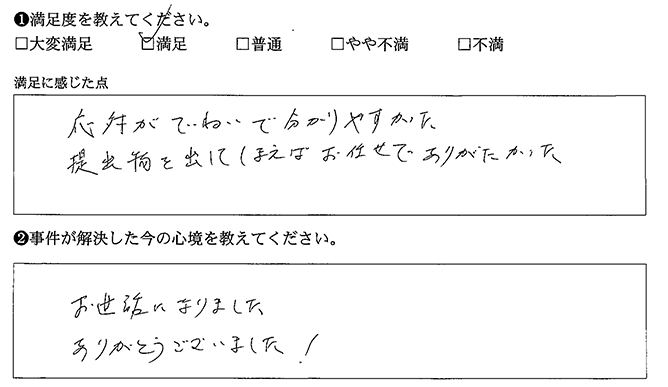 ❶満足度を教えてください。
□大変満足 ☑満足 □普通 □やや不満 □不満
満足に感じた点
応対がていねいで分かりやすかった
提出物を出してしまえばお任せでありがたかった
❷事件が解決した今の心境を教えてください。
お世話になりました
ありがとうございました!